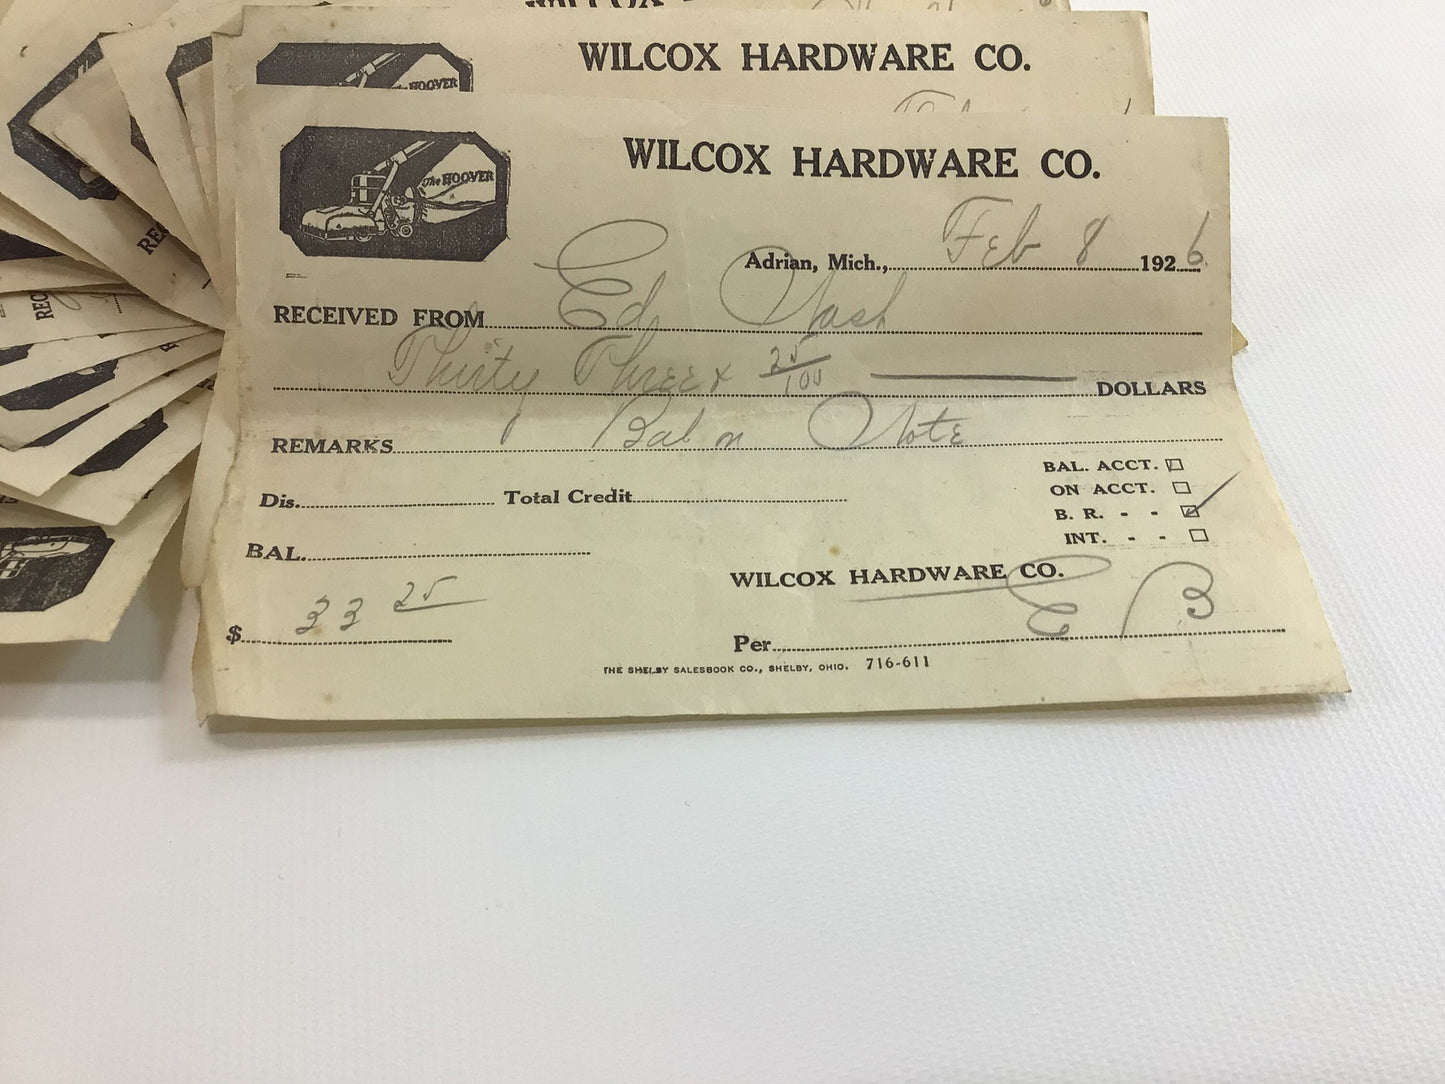 WILCOX
WILCOX HARDWARE CO.
The HOOVER
WILCOX HARDWARE CO.
The HOOVER
Adrian, Mich., Feb 8 1926
RECEIVED FROM Ed Nash
Thirty Three x 25/100 DOLLARS
REMARKS Bal on Note
Dis. Total Credit
BAL. ACCT.
ON ACCT.
B. R. - -
INT. - -
BAL.
WILCOX HARDWARE CO.
$ 33 25
Per E B
THE SHELBY SALESBOOK CO., SHELBY, OHIO. 716-611
REC
REC